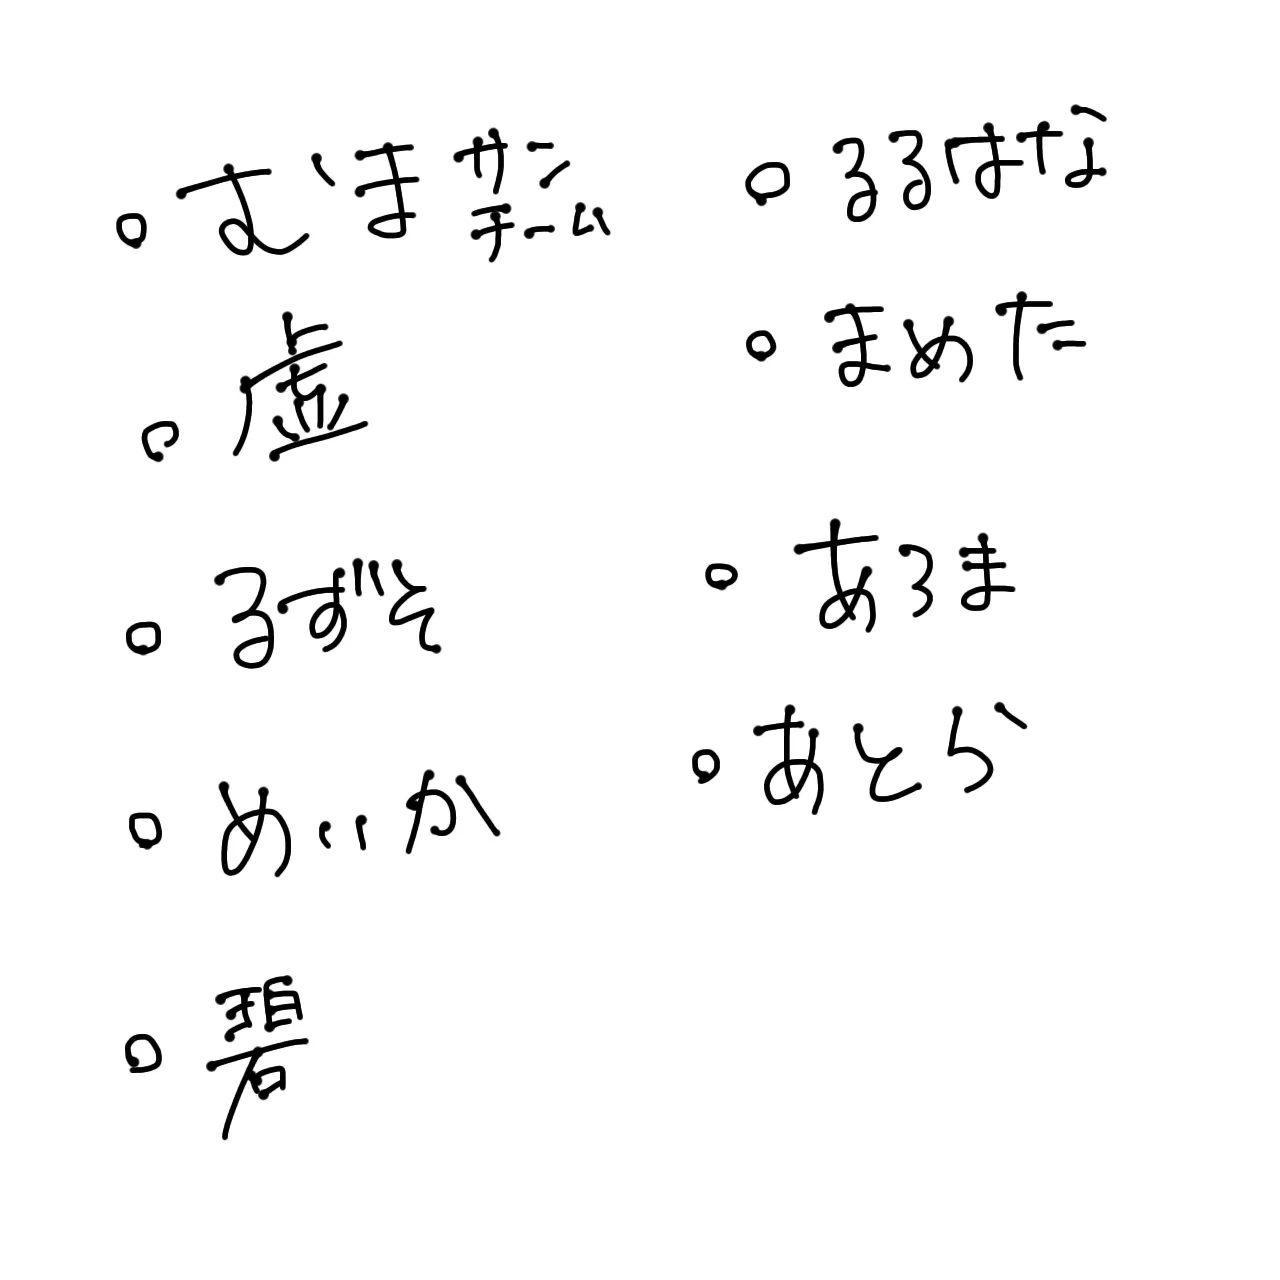 ○ むま サン
チーム
○ 虚
○ るずそ
○ めいか
○ 碧
○ るるはな
○ まめた
○ あろま
○ あとら